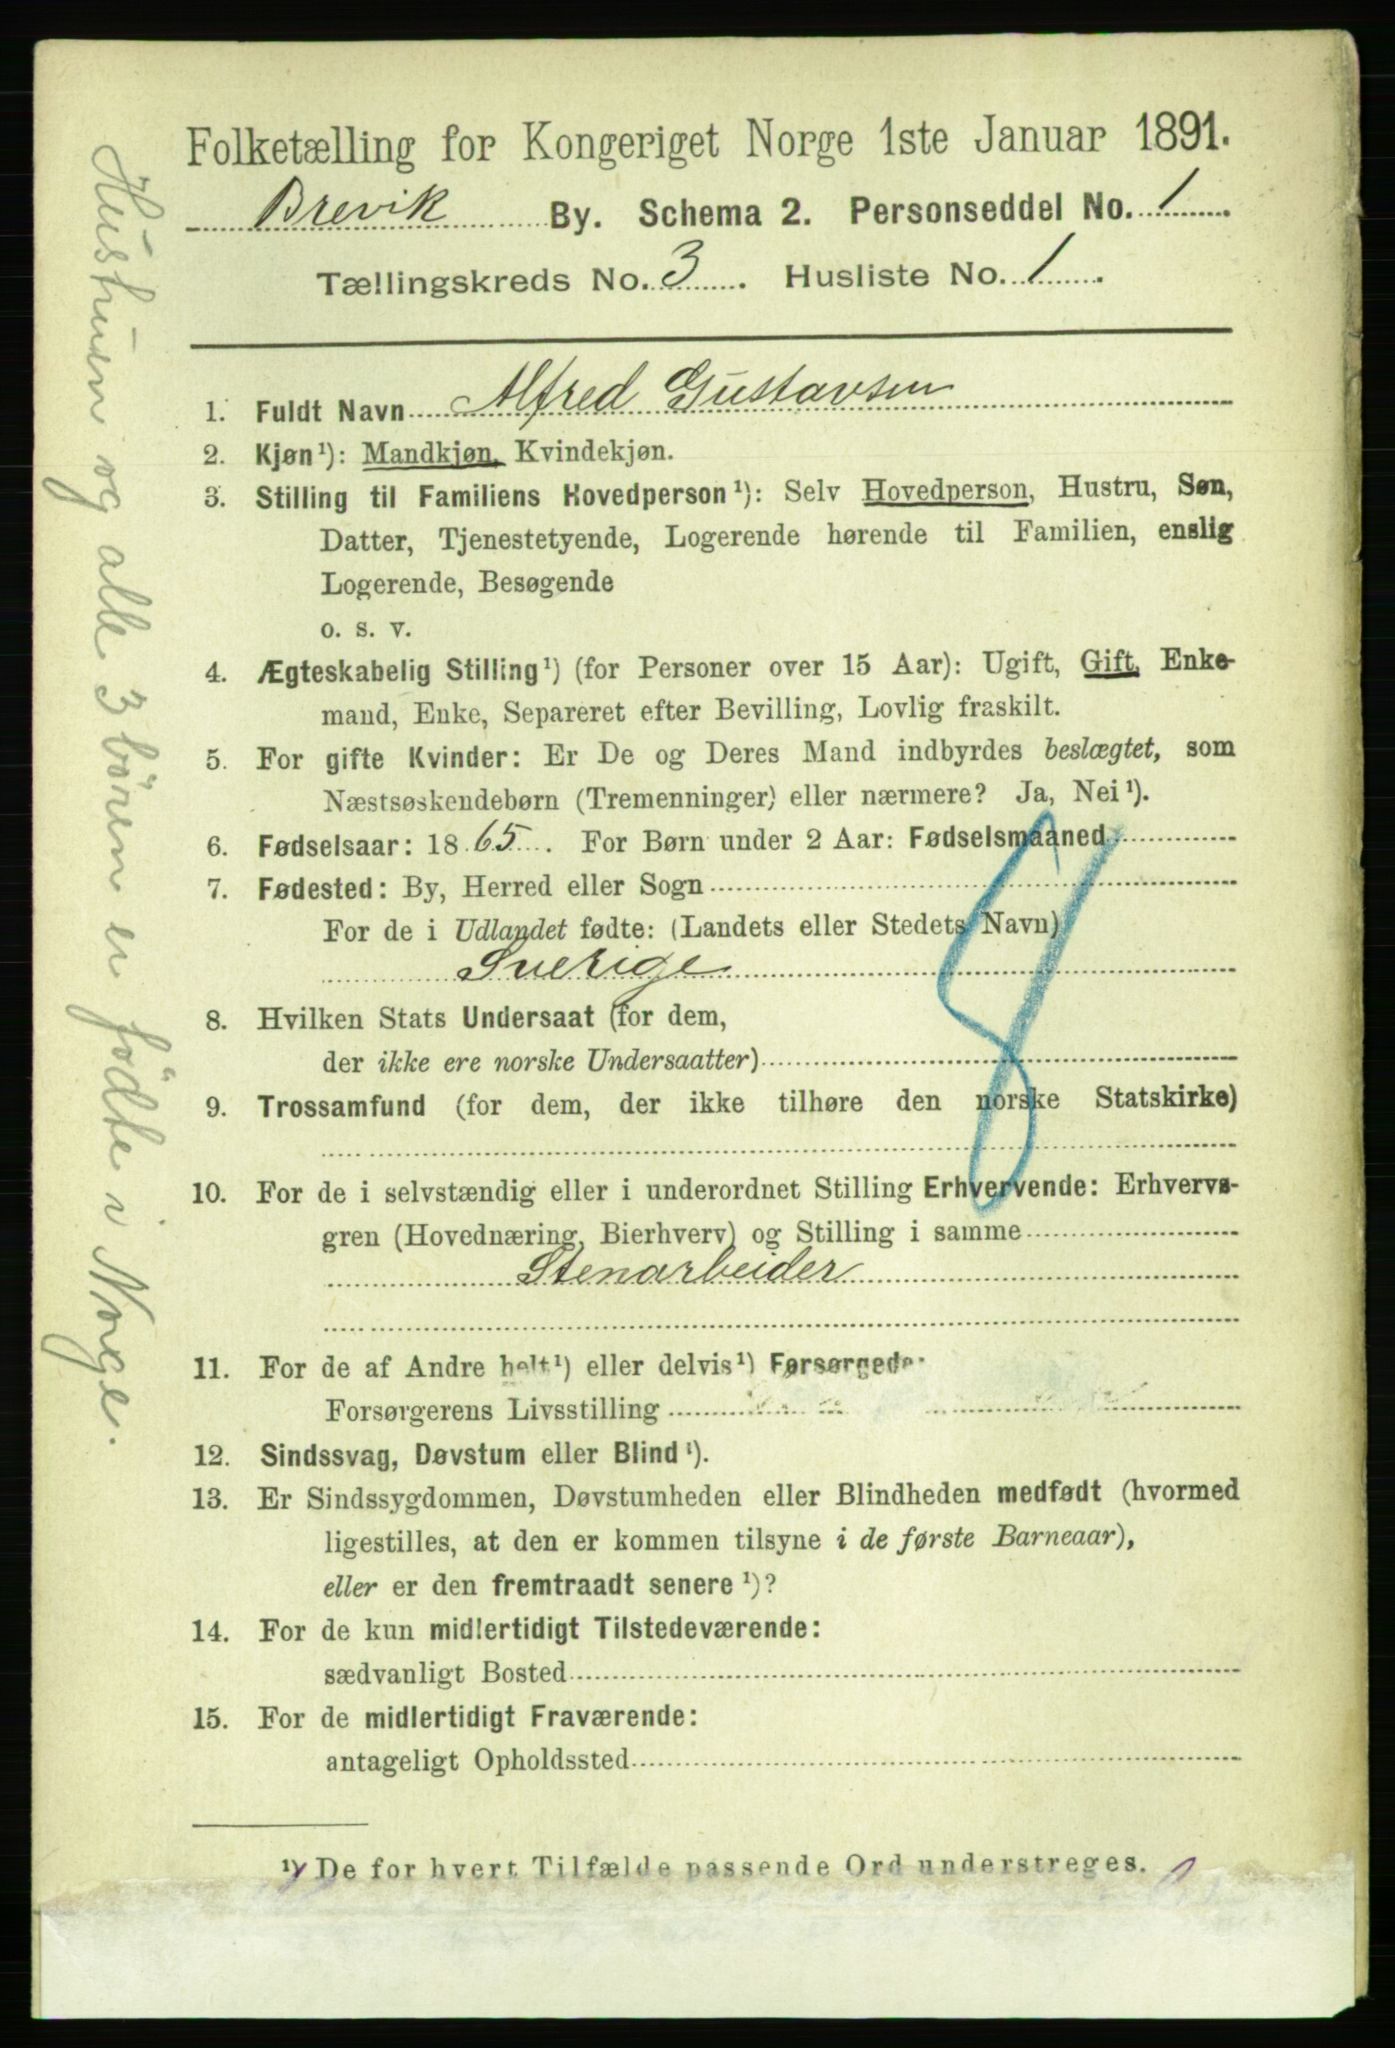 Folketælling for Kongeriget Norge 1ste Januar 1891.
Brevik By. Schema 2. Personseddel No. 1.
Tællingskreds No. 3. Husliste No. 1.
1. Fuldt Navn Alfred Gustavsen
2. Kjøn¹): Mandkjøn, Kvindekjøn.
3. Stilling til Familiens Hovedperson¹): Selv Hovedperson, Hustru, Søn,
Datter, Tjenestetyende, Logerende hørende til Familien, enslig
Logerende, Besøgende
o. s. v.
4. Ægteskabelig Stilling¹) (for Personer over 15 Aar): Ugift, Gift, Enke-
mand, Enke, Separeret efter Bevilling, Lovlig fraskilt.
5. For gifte Kvinder: Er De og Deres Mand indbyrdes beslægtet, som
Næstsøskendebørn (Tremenninger) eller nærmere? Ja, Nei¹).
6. Fødselsaar: 1865. For Børn under 2 Aar: Fødselsmaaned
7. Fødested: By, Herred eller Sogn
For de i Udlandet fødte: (Landets eller Stedets Navn)
Sverige
8. Hvilken Stats Undersaat (for dem,
der ikke ere norske Undersaatter)
9. Trossamfund (for dem, der ikke tilhøre den norske Statskirke)
10. For de i selvstændig eller i underordnet Stilling Erhvervende: Erhvervs-
gren (Hovednæring, Bierhverv) og Stilling i samme
Stenarbeider
11. For de af Andre helt¹) eller delvis¹) Forsørgede:
Forsørgerens Livsstilling
12. Sindssvag, Døvstum eller Blind¹).
13. Er Sindssygdommen, Døvstumheden eller Blindheden medfødt (hvormed
ligestilles, at den er kommen tilsyne i de første Barneaar),
eller er den fremtraadt senere¹)?
14. For de kun midlertidigt Tilstedeværende:
sædvanligt Bosted
15. For de midlertidigt Fraværende:
antageligt Opholdssted
¹) De for hvert Tilfælde passende Ord understreges.
Hustruen og alle 3 börn er födte i Norge.